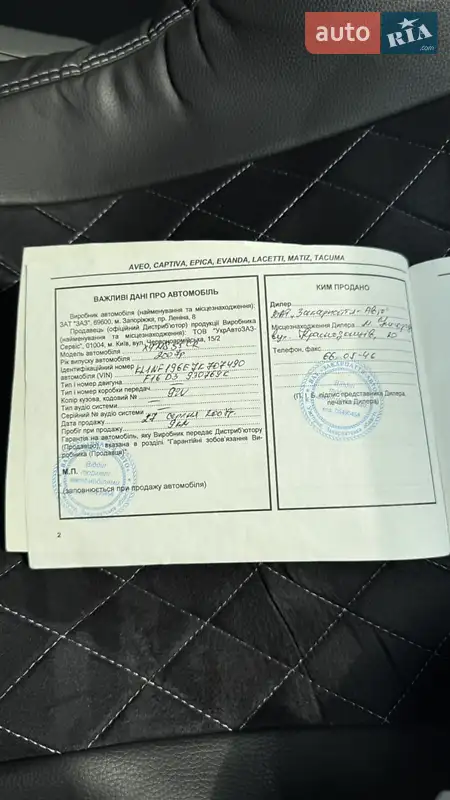 auto RIA.com
AVEO, CAPTIVA, EPICA, EVANDA, LACETTI, MATIZ, TACUMA
ВАЖЛИВІ ДАНІ ПРО АВТОМОБІЛЬ
Виробник автомобіля (найменування та місцезнаходження):
ЗАТ "ЗАЗ", 69600, м. Запоріжжя, пр. Леніна, 8
Продавець (офіційний Дистриб'ютор) продукції Виробника
(найменування та місцезнаходження): ТОВ "УкрАвтоЗАЗ-
Сервіс", 01004, м. Київ, вул. Червоноармійська, 15/2
Модель автомобіля
Рік випуску автомобіля 2007р
Ідентифікаційний номер
автомобіля (VIN)
Тип і номер двигуна F16D3
Тип і номер коробки передач
Колір кузова, кодовий №
Тип аудіо системи —
Серійний № аудіо системи
Дата продажу 27 2007р.
Пробіг при продажу 9км
Гарантія на автомобіль, яку Виробник передає Дистриб'ютору
(Продавцю), вказана в розділі "Гарантійні зобов'язання Ви-
робника (Продавця)".
М.П.
(заповнюється при продажу автомобіля)
2
КИМ ПРОДАНО
Дилер "Закарпаття-Авто"
Місцезнаходження Дилера м. Ужгород
вул.
Телефон, факс 66-05-46
(П. І. Б., підпис представника Дилера,
печатка Дилера)